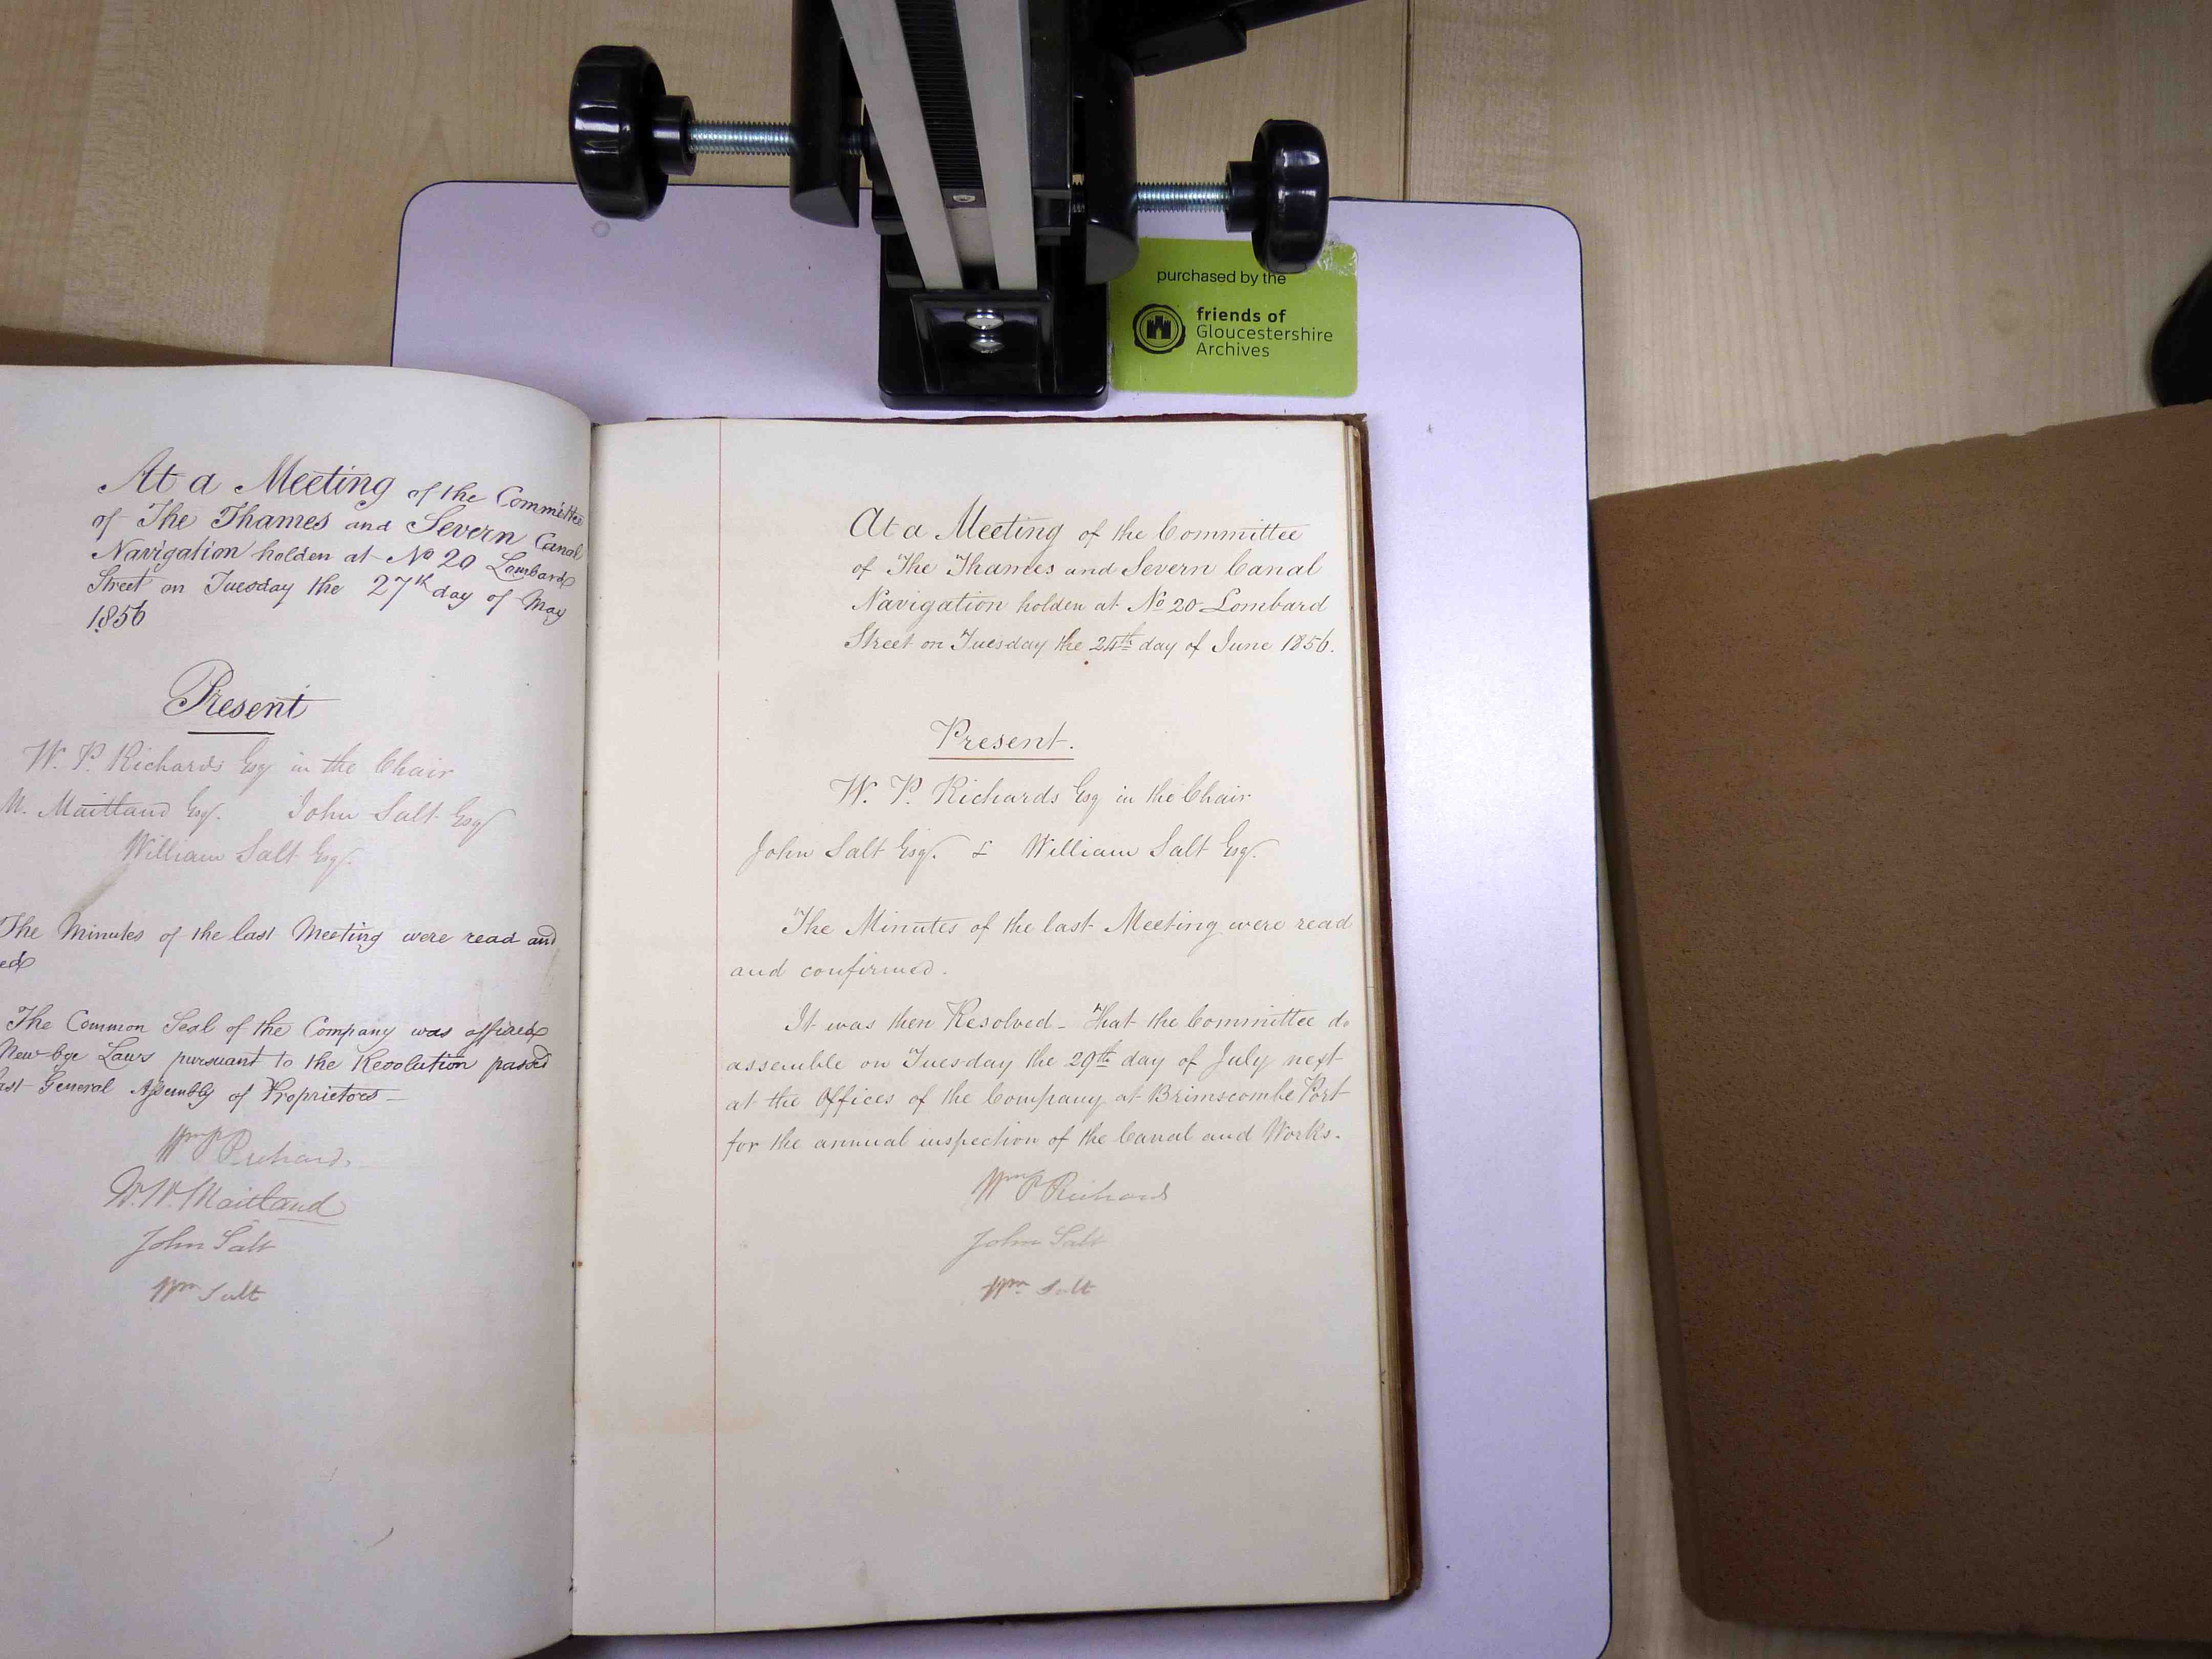 purchased by the
friends of
Gloucestershire
Archives
At a Meeting of the Committee
of The Thames and Severn Canal
Navigation holden at No 20 Lombard
Street on Tuesday the 27th day of May
1856
Present
W. P. Richards Esq in the Chair
Maitland Esq. John Salt Esq
William Salt Esq.
The Minutes of the last Meeting were read and
ed
The Common Seal of the Company was affixed
New bye Laws pursuant to the Resolution passed
ast General Assembly of Proprietors —
Wm P Richards
W. W. Maitland
John Salt
Wm Salt
At a Meeting of the Committee
of The Thames and Severn Canal
Navigation holden at No 20 Lombard
Street on Tuesday the 24th day of June 1856.
Present.
W. P. Richards Esq in the Chair
John Salt Esq. & William Salt Esq.
The Minutes of the last Meeting were read
and confirmed.
It was then Resolved – That the Committee do
assemble on Tuesday the 29th day of July next
at the Offices of the Company at Brimscombe Port
for the annual inspection of the Canal and Works.
Wm P Richards
John Salt
Wm Salt